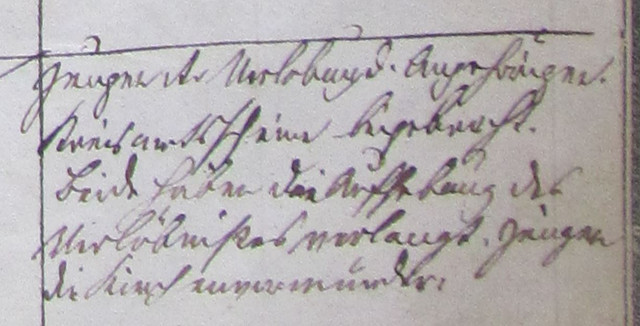 Zeugen der Verlobung d. Angehörigen.
Kreisamtsscheine beigebracht.
Beide haben die Aufhebung des
Verlöbnißes verlangt. Zeugen
die Kirchenvormünder.